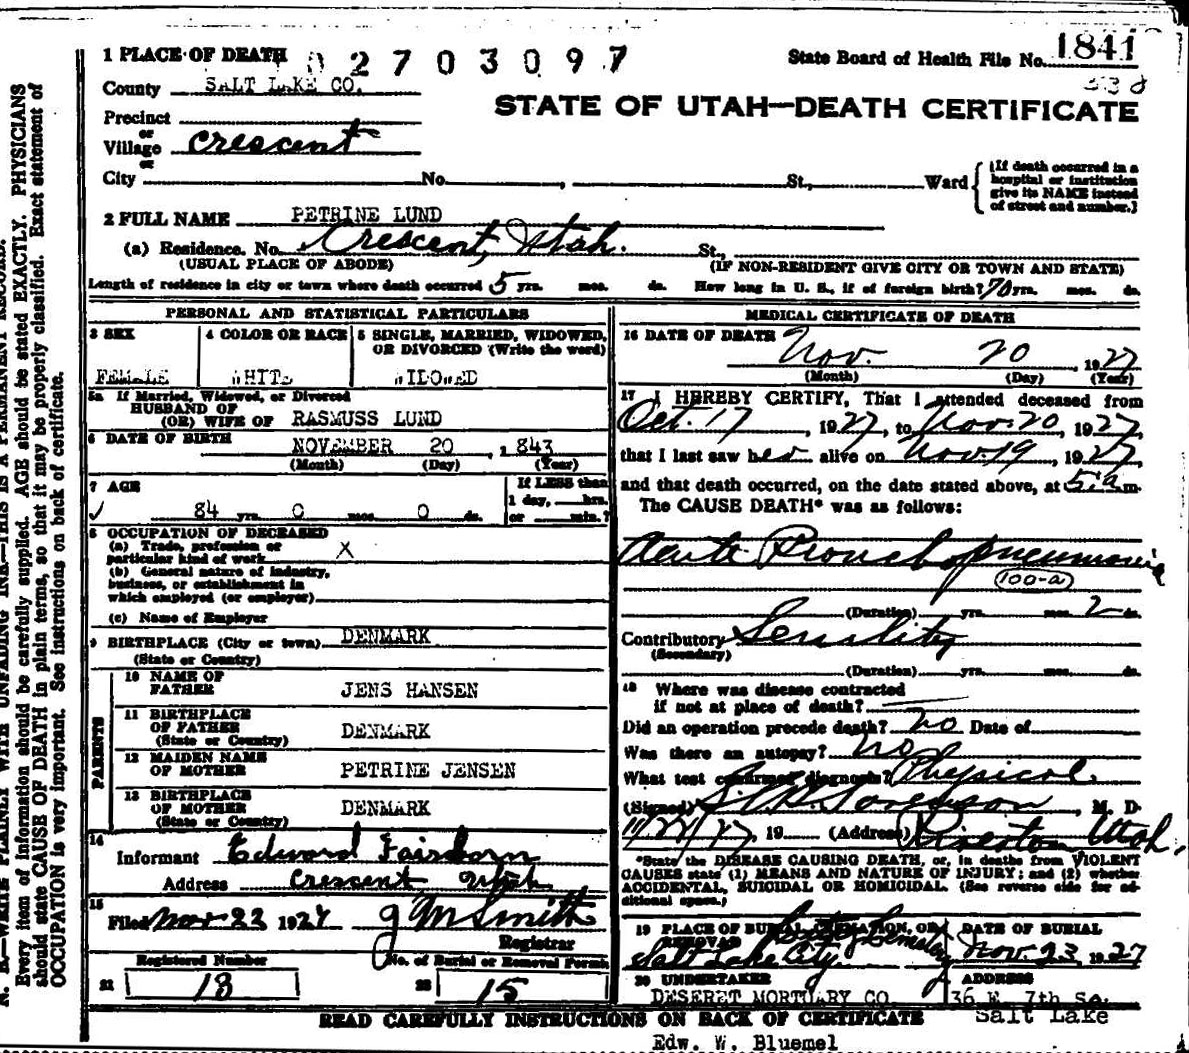 1 PLACE OF DEATH
02703097
State Board of Health File No. 1841
338
County SALT LAKE CO.
STATE OF UTAH—DEATH CERTIFICATE
Precinct
or
Village Crescent
or
City No. , St., Ward
(If death occurred in a
hospital or institution
give its NAME instead
of street and number.)
2 FULL NAME PETRINE LUND
(a) Residence. No. Crescent, Utah. St.,
(USUAL PLACE OF ABODE) (IF NON-RESIDENT GIVE CITY OR TOWN AND STATE)
Length of residence in city or town where death occurred 5 yrs. mos. ds. How long in U. S., if of foreign birth? 70 yrs. mos. ds.
PERSONAL AND STATISTICAL PARTICULARS
3 SEX
FEMALE
4 COLOR OR RACE
WHITE
5 SINGLE, MARRIED, WIDOWED,
OR DIVORCED (Write the word)
WIDOWED
5a If Married, Widowed, or Divorced
HUSBAND OF
(OR) WIFE OF RASMUSS LUND
6 DATE OF BIRTH NOVEMBER 20 , 1843
(Month) (Day) (Year)
7 AGE
84 yrs. 0 mos. 0 ds.
If LESS than
1 day, hrs.
or min.?
8 OCCUPATION OF DECEASED
(a) Trade, profession or
particular kind of work X
(b) General nature of industry,
business, or establishment in
which employed (or employer)
(c) Name of Employer
9 BIRTHPLACE (City or town) DENMARK
(State or Country)
PARENTS
10 NAME OF
FATHER JENS HANSEN
11 BIRTHPLACE
OF FATHER DENMARK
(State or Country)
12 MAIDEN NAME
OF MOTHER PETRINE JENSEN
13 BIRTHPLACE
OF MOTHER DENMARK
(State or Country)
14
Informant Edward Fairborn
Address Crescent Utah
15
Filed Nov 23 1927 J M Smith
Registrar
Registered Number
21 18
No. of Burial or Removal Permit
22 15
MEDICAL CERTIFICATE OF DEATH
16 DATE OF DEATH Nov. 20 , 1927
(Month) (Day) (Year)
17 I HEREBY CERTIFY, That I attended deceased from
Oct. 17 , 1927, to Nov. 20, 1927,
that I last saw her alive on Nov 19, 1927,
and that death occurred, on the date stated above, at 5 a m.
The CAUSE DEATH* was as follows:
Acute Bronchopneumonia
100-a
(Duration) yrs. mos. 2 ds.
Contributory Senility
(Secondary)
(Duration) yrs. mos. ds.
18 Where was disease contracted
if not at place of death?
Did an operation precede death? no Date of
Was there an autopsy? no
What test confirmed diagnosis? Physical
(Signed) Sorenson, M. D.
11/22/27 19 (Address) Riverton Utah.
*State the DISEASE CAUSING DEATH, or, in deaths from VIOLENT
CAUSES state (1) MEANS AND NATURE OF INJURY; and (2) whether
ACCIDENTAL, SUICIDAL OR HOMICIDAL. (See reverse side for ad-
ditional space.)
19 PLACE OF BURIAL, CREMATION, OR
REMOVAL City Cemetery
Salt Lake City
DATE OF BURIAL
Nov. 23, 1927
20 UNDERTAKER
DESERET MORTUARY CO
ADDRESS
36 E. 7th So.
Salt Lake
READ CAREFULLY INSTRUCTIONS ON BACK OF CERTIFICATE
Edw. W. Bluemel
N. B.—WRITE PLAINLY WITH UNFADING INK—THIS IS A PERMANENT RECORD.
Every item of information should be carefully supplied. AGE should be stated EXACTLY. PHYSICIANS
should state CAUSE OF DEATH in plain terms, so that it may be properly classified. Exact statement of
OCCUPATION is very important. See instructions on back of certificate.